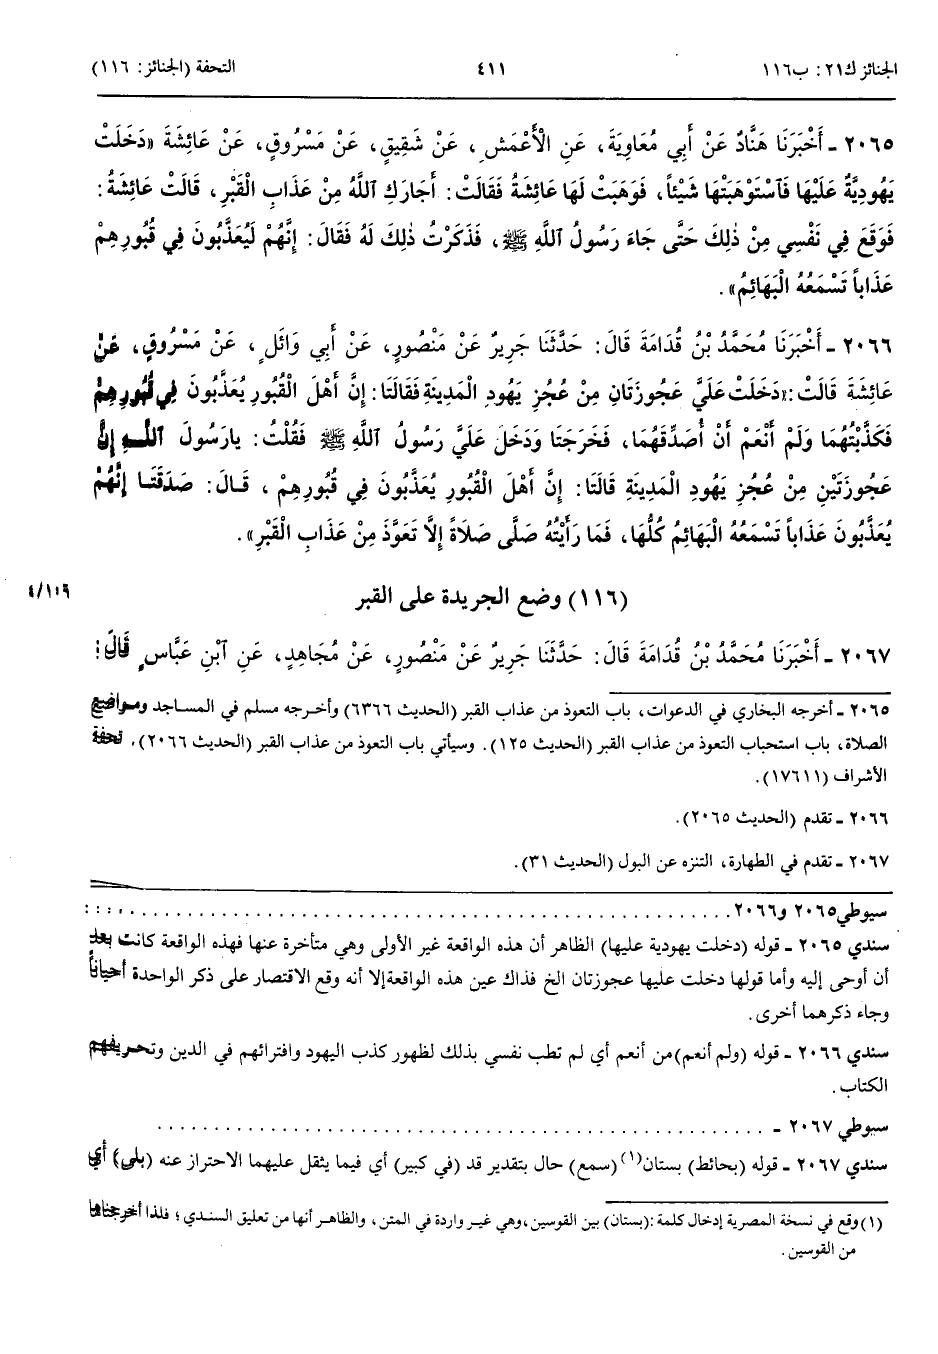 الجنائز ك٢١: ب١١٦ ٤١١ التحفة (الجنائز: ١١٦)
٢٠٦٥ ـ أَخْبَرَنَا هَنَّادٌ عَنْ أَبِي مُعَاوِيَةَ، عَنِ الْأَعْمَشِ، عَنْ شَقِيقٍ، عَنْ مَسْرُوقٍ، عَنْ عَائِشَةَ «دَخَلَتْ
يَهُودِيَّةٌ عَلَيْهَا فَٱسْتَوْهَبَتْهَا شَيْئاً، فَوَهَبَتْ لَهَا عَائِشَةُ فَقَالَتْ: أَجَارَكِ ٱللَّهُ مِنْ عَذَابِ الْقَبْرِ، قَالَتْ عَائِشَةُ:
فَوَقَعَ فِي نَفْسِي مِنْ ذٰلِكَ حَتَّى جَاءَ رَسُولُ ٱللَّهِ ﷺ، فَذَكَرْتُ ذٰلِكَ لَهُ فَقَالَ: إِنَّهُمْ لَيُعَذَّبُونَ فِي قُبُورِهِمْ
عَذَاباً تَسْمَعُهُ الْبَهَائِمُ».
٢٠٦٦ ـ أَخْبَرَنَا مُحَمَّدُ بْنُ قُدَامَةَ قَالَ: حَدَّثَنَا جَرِيرٌ عَنْ مَنْصُورٍ، عَنْ أَبِي وَائِلٍ، عَنْ مَسْرُوقٍ، عَنْ
عَائِشَةَ قَالَتْ: «دَخَلَتْ عَلَيَّ عَجُوزَتَانِ مِنْ عُجُزِ يَهُودِ الْمَدِينَةِ فَقَالَتَا: إِنَّ أَهْلَ الْقُبُورِ يُعَذَّبُونَ فِي قُبُورِهِمْ
فَكَذَّبْتُهُمَا وَلَمْ أَنْعَمْ أَنْ أُصَدِّقَهُمَا، فَخَرَجَتَا وَدَخَلَ عَلَيَّ رَسُولُ ٱللَّهِ ﷺ فَقُلْتُ: يارَسُولَ ٱللَّهِ إِنَّ
عَجُوزَتَيْنِ مِنْ عُجُزِ يَهُودِ الْمَدِينَةِ قَالَتَا: إِنَّ أَهْلَ الْقُبُورِ يُعَذَّبُونَ فِي قُبُورِهِمْ، قَالَ: صَدَقَتَا إِنَّهُمْ
يُعَذَّبُونَ عَذَاباً تَسْمَعُهُ الْبَهَائِمُ كُلُّهَا، فَمَا رَأَيْتُهُ صَلَّى صَلَاةً إِلَّا تَعَوَّذَ مِنْ عَذَابِ الْقَبْرِ».
(١١٦) وضع الجريدة على القبر
٤/١٠٩
٢٠٦٧ ـ أَخْبَرَنَا مُحَمَّدُ بْنُ قُدَامَةَ قَالَ: حَدَّثَنَا جَرِيرٌ عَنْ مَنْصُورٍ، عَنْ مُجَاهِدٍ، عَنِ ٱبْنِ عَبَّاسٍ قَالَ:
٢٠٦٥ ـ أخرجه البخاري في الدعوات، باب التعوذ من عذاب القبر (الحديث ٦٣٦٦) وأخرجه مسلم في المساجد ومواضع
الصلاة، باب استحباب التعوذ من عذاب القبر (الحديث ١٢٥). وسيأتي باب التعوذ من عذاب القبر (الحديث ٢٠٦٦)، تحفة
الأشراف (١٧٦١١).
٢٠٦٦ ـ تقدم (الحديث ٢٠٦٥).
٢٠٦٧ ـ تقدم في الطهارة، التنزه عن البول (الحديث ٣١).
سيوطي ٢٠٦٥ و٢٠٦٦ ....................
سندي ٢٠٦٥ ـ قوله (دخلت يهودية عليها) الظاهر أن هذه الواقعة غير الأولى وهي متأخرة عنها فهذه الواقعة كانت بعد
أن أوحى إليه وأما قولها دخلت عليها عجوزتان الخ فذاك عين هذه الواقعة إلا أنه وقع الاقتصار على ذكر الواحدة أحياناً
وجاء ذكرهما أخرى.
سندي ٢٠٦٦ ـ قوله (ولم أنعم) من أنعم أي لم تطب نفسي بذلك لظهور كذب اليهود وافترائهم في الدين وتحريفهم
الكتاب.
سيوطي ٢٠٦٧ ـ ....................
سندي ٢٠٦٧ ـ قوله (بحائط) بستان(١) (سمع) حال بتقدير قد (في كبير) أي فيما يثقل عليهما الاحتراز عنه (بلى) أي
(١) وقع في نسخة المصرية إدخال كلمة: (بستان) بين القوسين، وهي غير واردة في المتن، والظاهر أنها من تعليق السندي؛ فلذا أخرجناها
من القوسين.